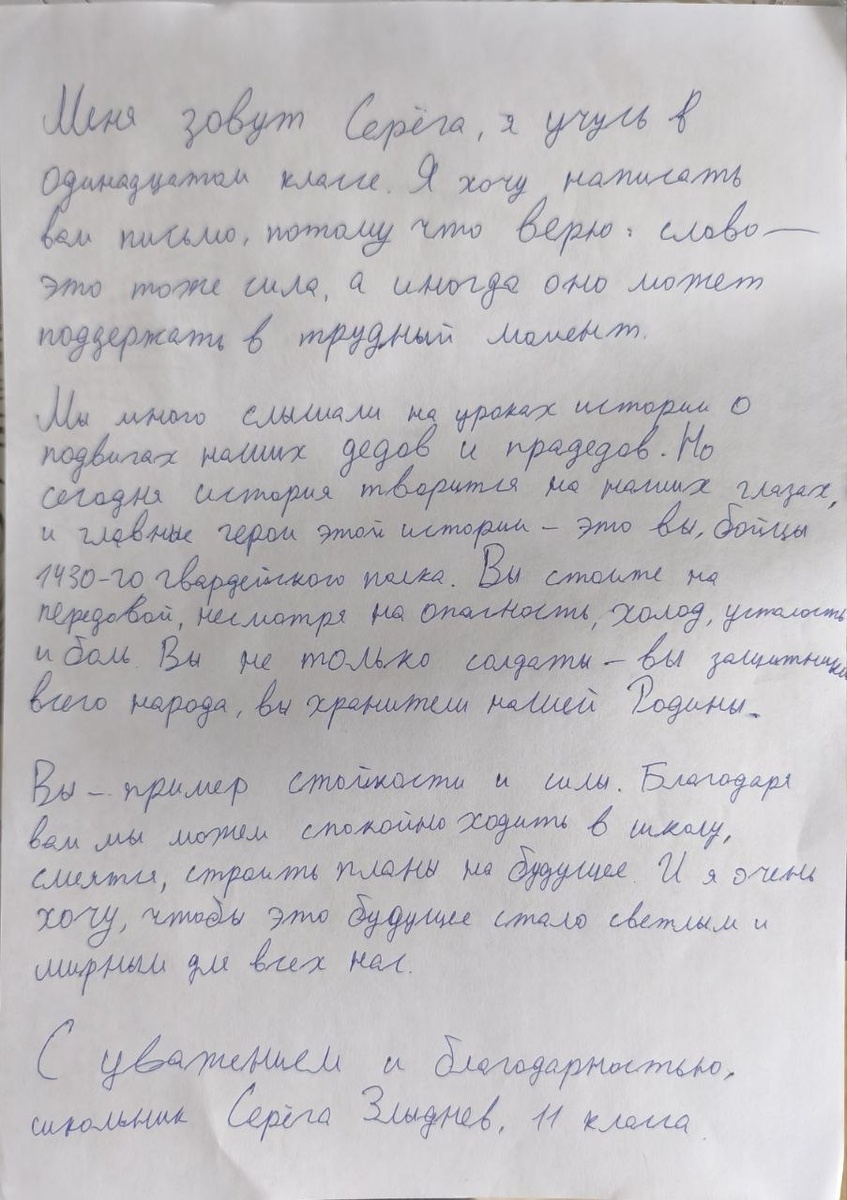 Меня зовут Серёга, я учусь в
одинадцатом классе. Я хочу написать
вам письмо, потому что верю: слово —
это тоже сила, а иногда оно может
поддержать в трудный момент.
Мы много слышали на уроках истории о
подвигах наших дедов и прадедов. Но
сегодня история творится на наших глазах,
и главные герои этой истории – это вы, бойцы
1430-го гвардейского полка. Вы стоите на
передовой, несмотря на опасность, холод, усталость
и боль. Вы не только солдаты – вы защитники
всего народа, вы хранители нашей Родины.
Вы – пример стойкости и силы. Благодаря
вам мы можем спокойно ходить в школу,
смеятся, строить планы на будущее. И я очень
хочу, чтобы это будущее стало светлым и
мирным для всех нас.
С уважением и благодарностью,
школьник Серёга Злыднев, 11 класса.